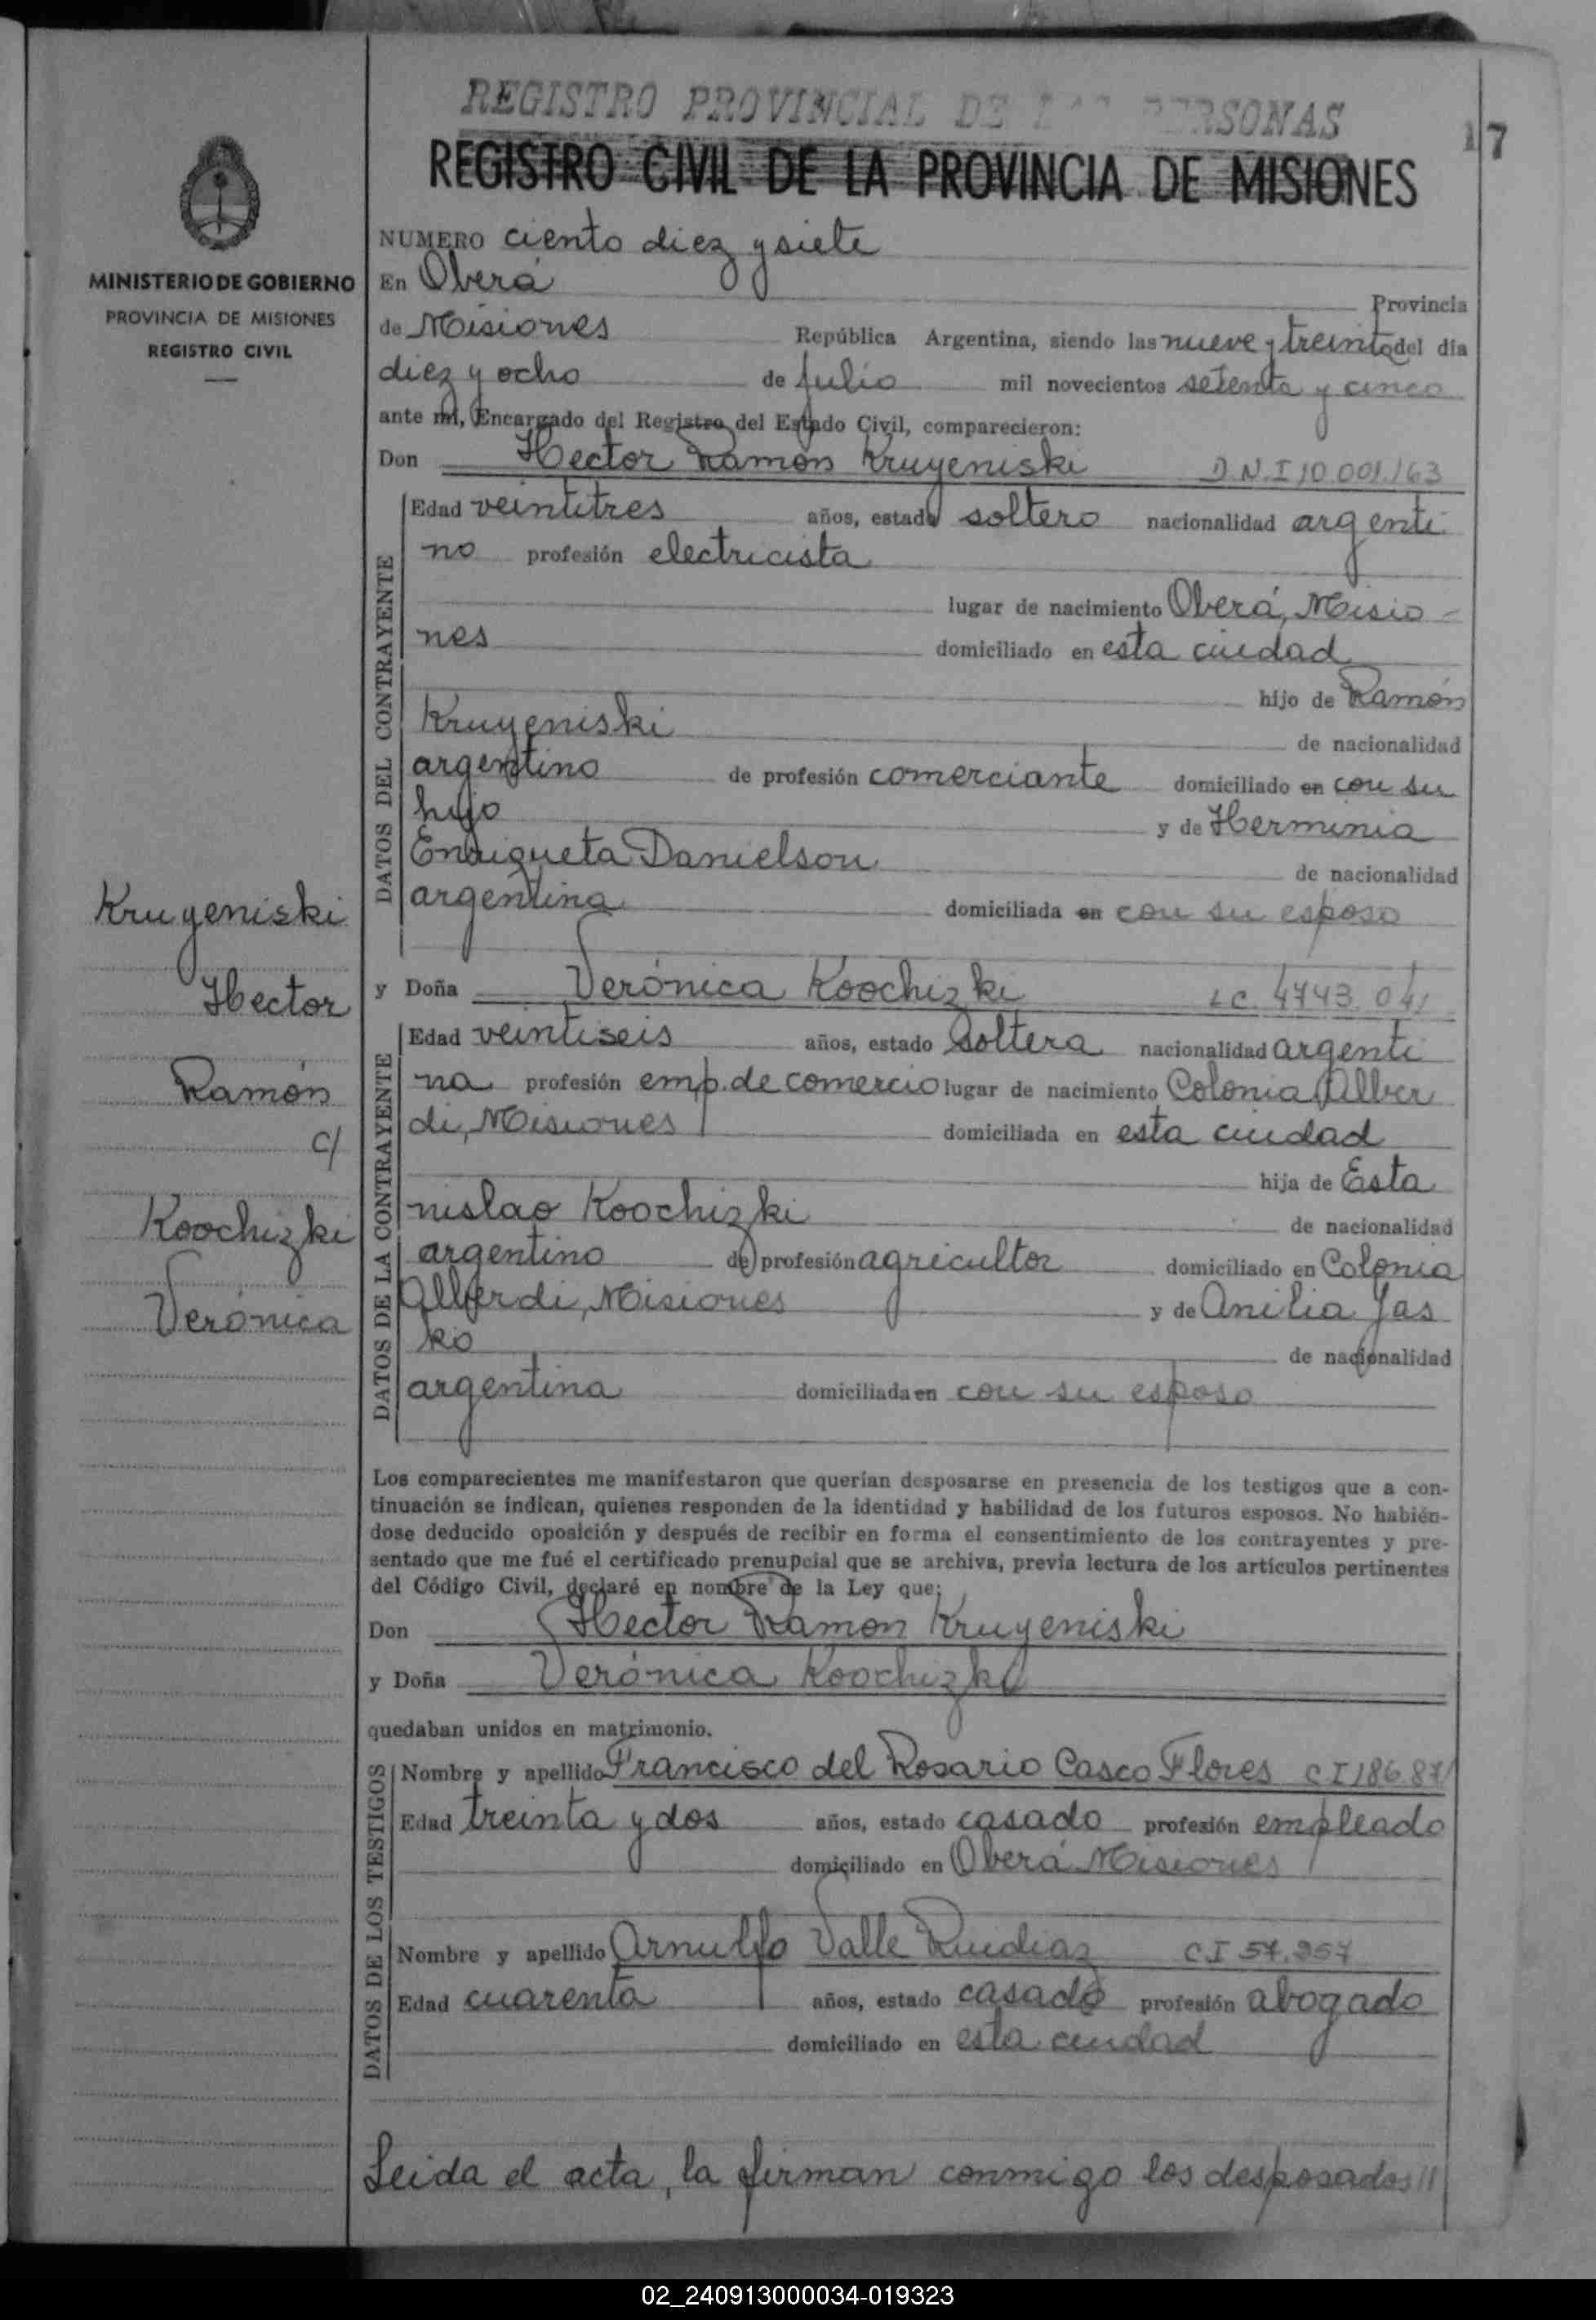 REGISTRO PROVINCIAL DE LAS PERSONAS
REGISTRO CIVIL DE LA PROVINCIA DE MISIONES
17
MINISTERIO DE GOBIERNO
PROVINCIA DE MISIONES
REGISTRO CIVIL
NUMERO ciento diez y siete
En Oberá Provincia
de Misiones República Argentina, siendo las nueve y treinta del día
diez y ocho de julio mil novecientos setenta y cinco
ante mí, Encargado del Registro del Estado Civil, comparecieron:
Don Hector Ramon Kruyeniski D.N.I 10.001.163
DATOS DEL CONTRAYENTE
Edad veintitres años, estado soltero nacionalidad argenti
no profesión electricista
lugar de nacimiento Oberá, Misio-
nes domiciliado en esta ciudad
hijo de Ramón
Kruyeniski de nacionalidad
argentino de profesión comerciante domiciliado en con su
hijo y de Herminia
Enriqueta Danielson de nacionalidad
argentina domiciliada en con su esposo
Kruyeniski
Hector
Ramón
c/
Koochizki
Verónica
y Doña Verónica Koochizki LC. 4743.041
DATOS DE LA CONTRAYENTE
Edad veintiseis años, estado soltera nacionalidad argenti
na profesión emp. de comercio lugar de nacimiento Colonia Alber
di, Misiones domiciliada en esta ciudad
hija de Esta
nislao Koochizki de nacionalidad
argentino de profesión agricultor domiciliado en Colonia
Alberdi, Misiones y de Anilia Jas
ko de nacionalidad
argentina domiciliada en con su esposo
Los comparecientes me manifestaron que querían desposarse en presencia de los testigos que a con-
tinuación se indican, quienes responden de la identidad y habilidad de los futuros esposos. No habién-
dose deducido oposición y después de recibir en forma el consentimiento de los contrayentes y pre-
sentado que me fué el certificado prenupcial que se archiva, previa lectura de los artículos pertinentes
del Código Civil, declaré en nombre de la Ley que:
Don Hector Ramon Kruyeniski
y Doña Verónica Koochizki
quedaban unidos en matrimonio.
DATOS DE LOS TESTIGOS
Nombre y apellido Francisco del Rosario Casco Flores CI 186.871
Edad treinta y dos años, estado casado profesión empleado
domiciliado en Oberá Misiones
Nombre y apellido Arnulfo Valle Ruidiaz CI 57.257
Edad cuarenta años, estado casado profesión abogado
domiciliado en esta ciudad
Leida el acta, la firman conmigo los desposados//
02_240913000034-019323